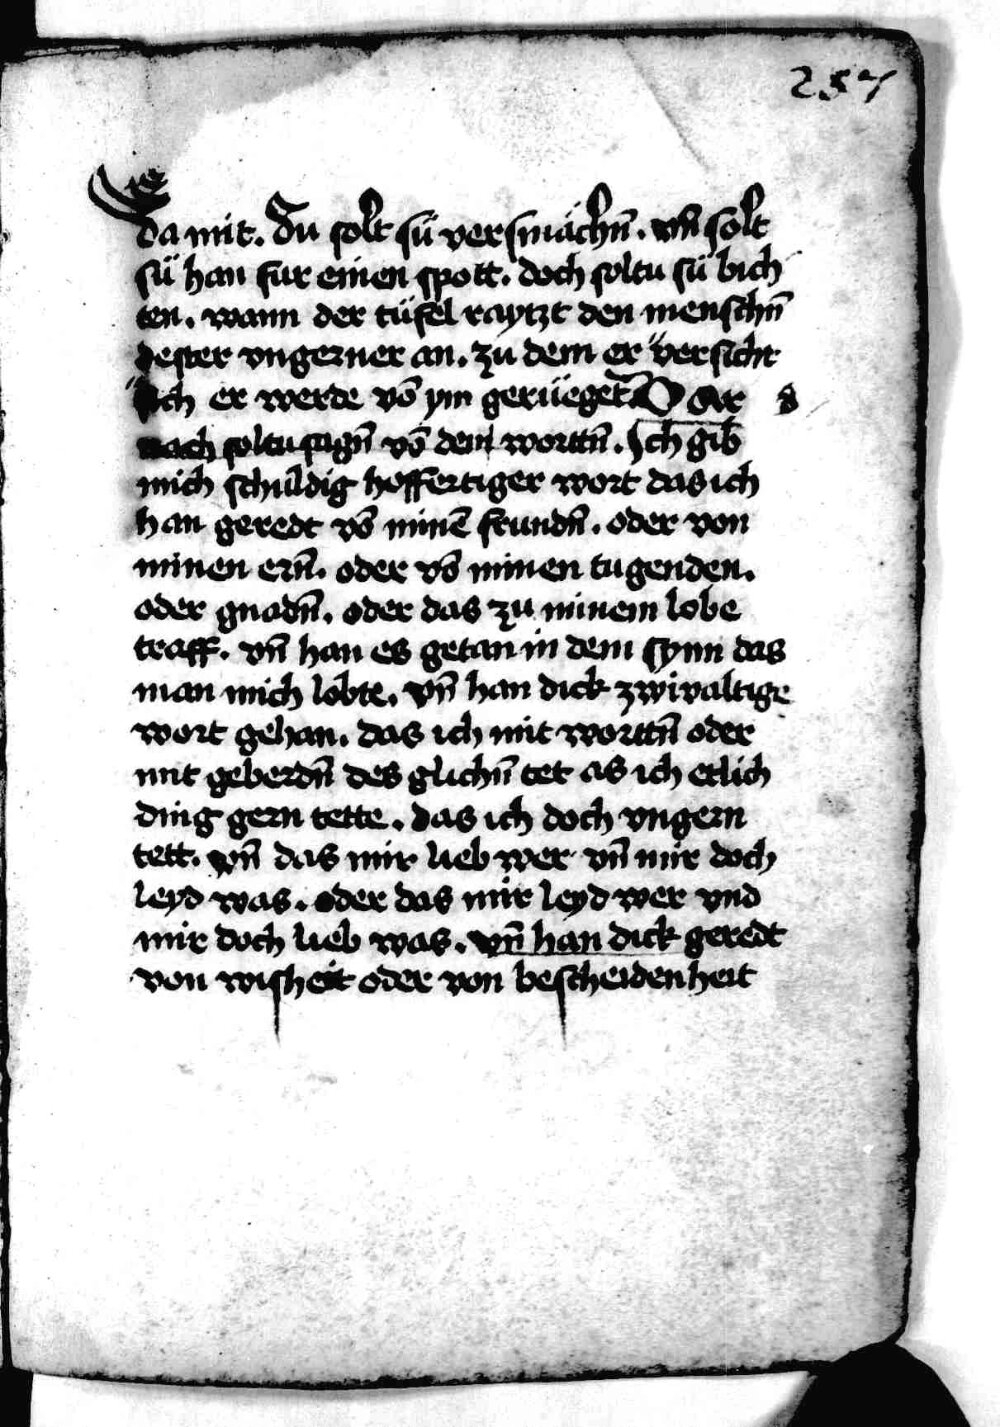 257
da mit. Du solt sü versmächñ. vñ solt
sü han fur einen spott. doch soltu sü bich
ten. wann der tüfel raytzt den menschñ
dester vngerner an. zu dem er versicht
sich er werde vō ym gerüeget Dar
nach soltu sagñ vō den worttñ. Ich gib
mich schuldig hoffertiger wort das ich
han geredt vō minē frundñ. oder von
minen erñ. oder vō minen tugenden.
oder gnadñ. oder das zu minem lobe
traff. vñ han es getan in dem synn das
man mich lobte. vñ han dick zwivaltige
wort gehan. das ich mit worttñ oder
mit geberdñ des glichñ tet as ich etlich
ding gern tette. das ich doch vngern
tett. vñ das mir lieb wer vñ mir doch
leyd was. oder das mir leyd wer vnd
mir doch lieb was. vñ han dick geredt
von wisheit oder von bescheidenheit